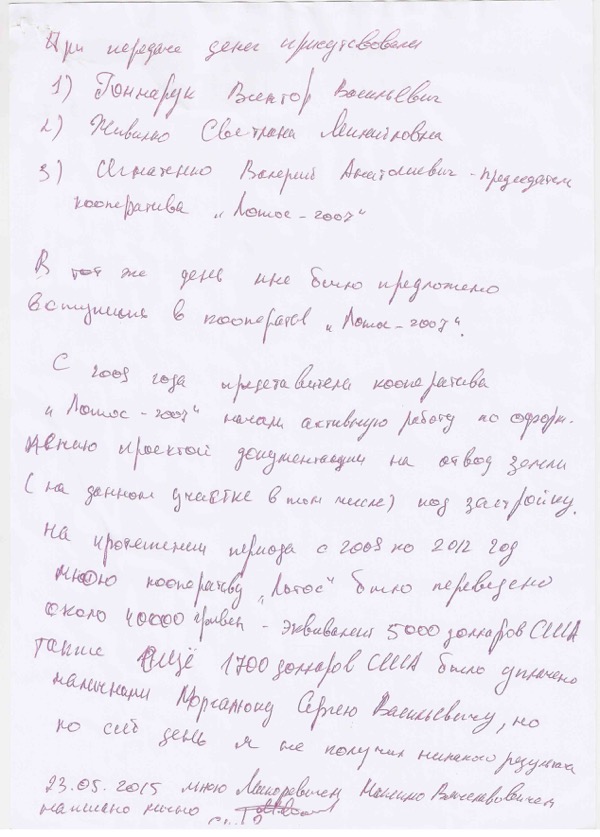 При передаче денег присутствовали
1) Гоннарук Виктор Васильевич
2) Живилко Светлана Михайловна
3) Игнатенко Валерий Анатолиевич - председатель
кооператива „Лотос-2007"
В тот же день мне было предложено
вступить в кооператив „Лотос-2007".
С 2009 года представители кооператива
„Лотос-2007" начали активную работу по оформ-
лению проектой документации на отвод земли
(на данном участке в том числе) под застройку.
На протяжении периода с 2009 по 2012 год
мною кооперативу „Лотос" было переведено
около 40000 гривен - эквивалент 5000 долларов США
также ещё 1700 долларов США было уплачено
наличными Сергею Васильевичу, но
по сей день я не получил никакого результата
23.05.2015 мною
написано лично